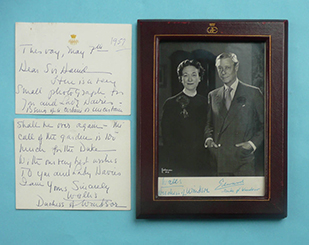 Tuesday, May 7th
1957
Dear Sir David
Here is a very
Small photograph for
you and Lady Davies -
Shall be over again - the
call of the garden is too
much for the Duke
With our very best wishes
To you and Lady Davies
I am Yours Sincerely
Wallis
Duchess of Windsor
Wallis
Duchess of Windsor
Edward
Duke of Windsor